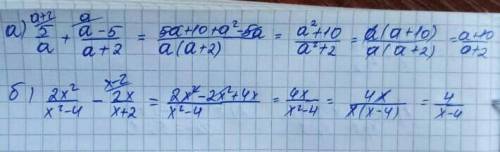 а) 5/a^(a+2) + (a-5)/(a+2)^a = (5a+10+a²-5a)/(a(a+2)) = (a²+10)/(a²+2) = (a(a+10))/(a(a+2)) = (a+10)/(a+2)
б) 2x²/(x²-4) - 2x/(x+2)^(x-2) = (2x²-2x²+4x)/(x²-4) = 4x/(x²-4) = 4x/(x(x-4)) = 4/(x-4)